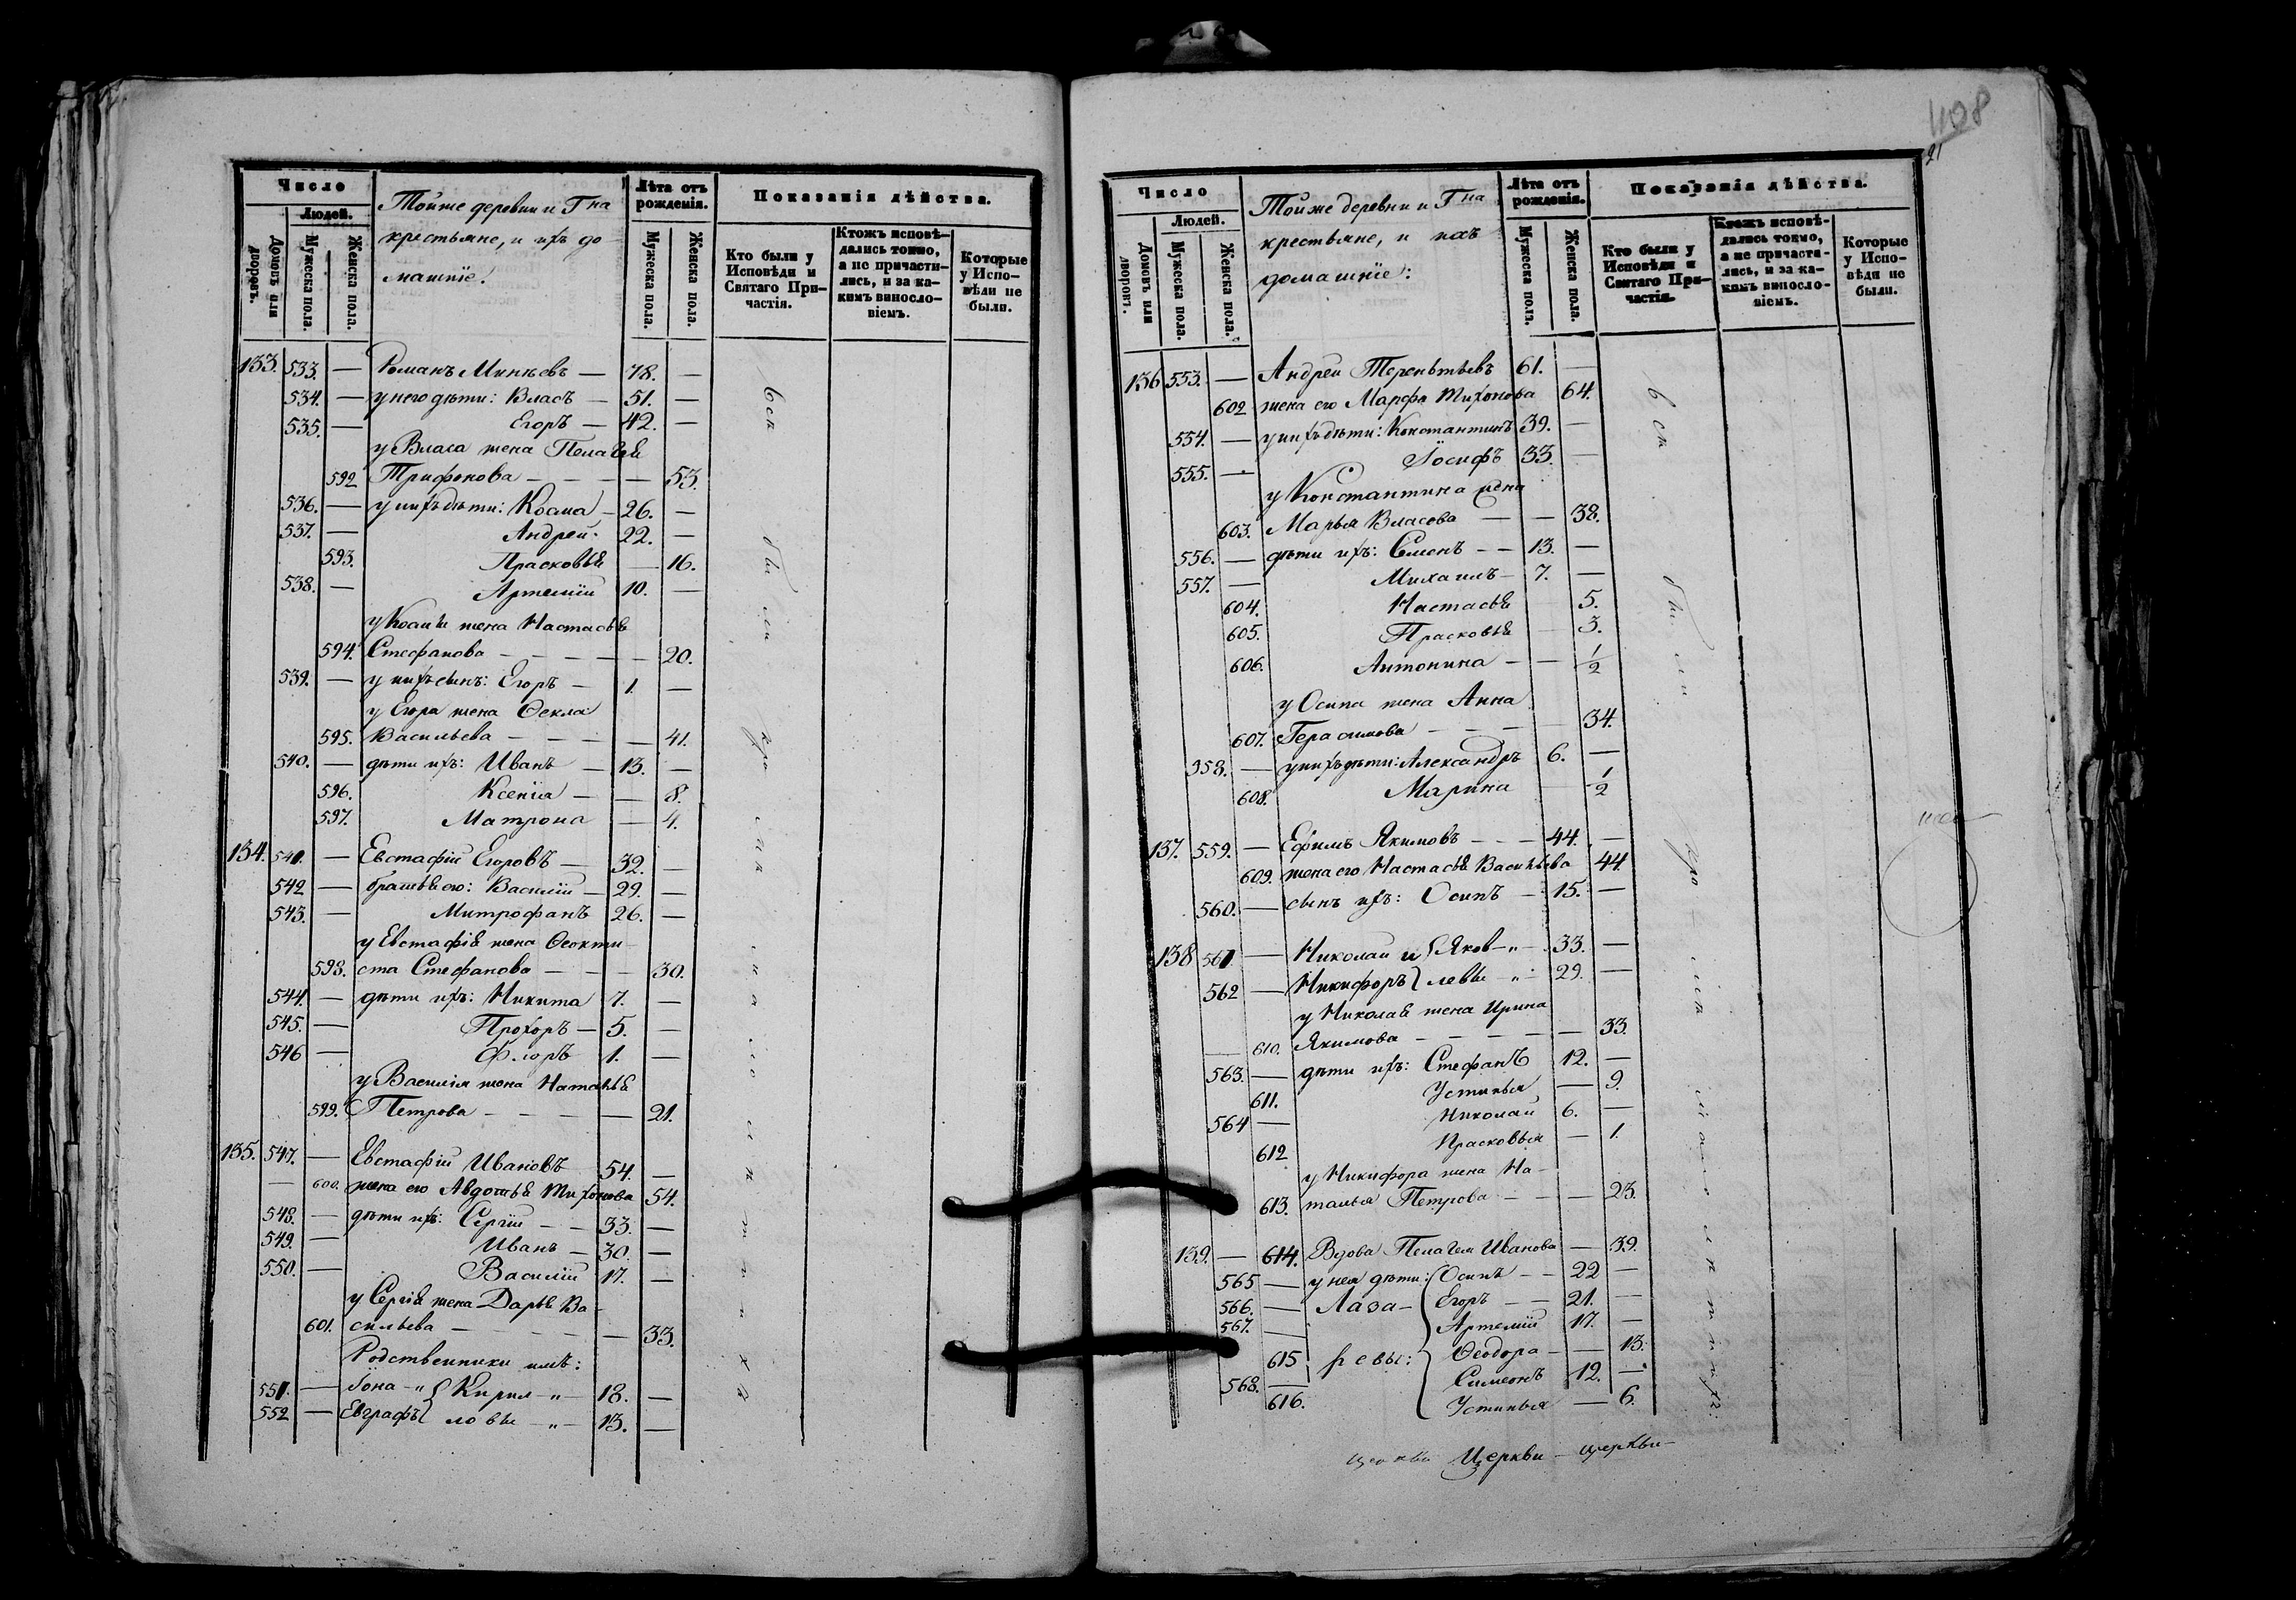 Число
Людей.
Домовъ или дворовъ.
Мужеска пола.
Женска пола.
Тойже деревни и Гна
крестьяне, и ихъ до-
машніе.
Лѣта отъ рожденія.
Мужеска пола.
Женска пола.
Показанія дѣйства.
Кто были у Исповѣди и Святаго При-частія.
Ктожъ исповѣ-дались токмо, а не причасти-лись, и за ка-кимъ винословіемъ.
Которые у Испо-вѣди не были.
133. 533. — Романъ Минѣевъ — 78. —
534. — у него дѣти: Власъ — 51. —
535. — Егоръ — 42. —
у Власа жена Пелагея
592 Трифонова — — — — 53.
536. — у нихъ дѣти: Косма — 26. —
537. — Андрей 22. —
593. Прасковья — 16.
538. — Артемій 10. —
у Космы жена Настасья
594. Стефанова — — — — 20.
539. — у нихъ сынъ: Егоръ — 1. —
у Егора жена Ѳекла
595. Васильева — — — — 41.
540. — дѣти ихъ: Иванъ — 13. —
596. Ксенія — — 8.
597. Матрона — 4.
134. 541. — Евстафій Егоровъ — 32. —
542 — братья его: Василій — 29. —
543. — Митрофанъ 26. —
у Евстафія жена Ѳеокти-
598. ста Стефанова — — — 30.
544. — дѣти ихъ: Никита 7. —
545. — Прохоръ — 5. —
546 — Флоръ 1. —
у Василія жена Наталья
599. Петрова — — — — 21.
135. 547. — Евстафій Ивановъ 54. —
— 600. жена его Авдотья Тихонова 54.
548. — дѣти ихъ: Сергій — — 33. —
549. — Иванъ — 30. —
550. — Василій 17. —
у Сергія жена Дарья Ва-
601. сильева — — — — 33.
Родственники имъ:
551. — Іона „ { Кирил „ — 18. —
552 — Евграфъ { ловы „ — 13. —
всѣ были при исповѣди
1108
21
Число
Людей.
Домовъ или дворовъ.
Мужеска пола.
Женска пола.
Тойже деревни и Гна
крестьяне, и ихъ
домашніе:
Лѣта отъ рожденія.
Мужеска пола.
Женска пола.
Показанія дѣйства.
Кто были у Исповѣди и Святаго При-частія.
Ктожъ исповѣ-дались токмо, а не причасти-лись, и за ка-кимъ винословіемъ.
Которые у Испо-вѣди не были.
136 553. — Андрей Терентьевъ 61. —
602 жена его Марфа Тихонова 64.
554. — у нихъ дѣти: Константинъ 39. —
555. — Іосифъ 33. —
у Константина жена
603. Марья Власова — — 38.
556. — дѣти ихъ: Семенъ — — 13. —
557. — Михаилъ — 7. —
604. Настасья 5.
605. Прасковья — 3.
606. Антонина — — 1/2
у Осипа жена Анна
607. Герасимова — — — 34.
358. — у нихъ дѣти: Александръ 6. —
608. Марина 1/2
137. 559. — Ефимъ Якимовъ — — 44. —
609. жена его Настасья Васильева 44.
560. — сынъ ихъ: Осипъ — 15. —
138 561 — Николай и { Яков — „ — 33. —
562 — Никифоръ } левы „ — 29. —
у Николая жена Ирина
— 610. Якимова — — — — 33.
563. — дѣти ихъ: Стефанъ 12. —
611. Устинья — 9.
564 — Николай 6. —
612 Прасковья — 1.
у Никифора жена На-
613. талья Петрова — — — 23.
139. — 614. Вдова Пелагея Иванова — 39.
565 — у нея дѣти: { Осипъ — — 22 —
566. — Лаза- { Егоръ — — 21. —
567. — Артемій 17. —
615 ревы: { Ѳеодора — — 13.
568. — Симеонъ 12. —
616. Устинья — 6.
церкви Церкви — церкви —